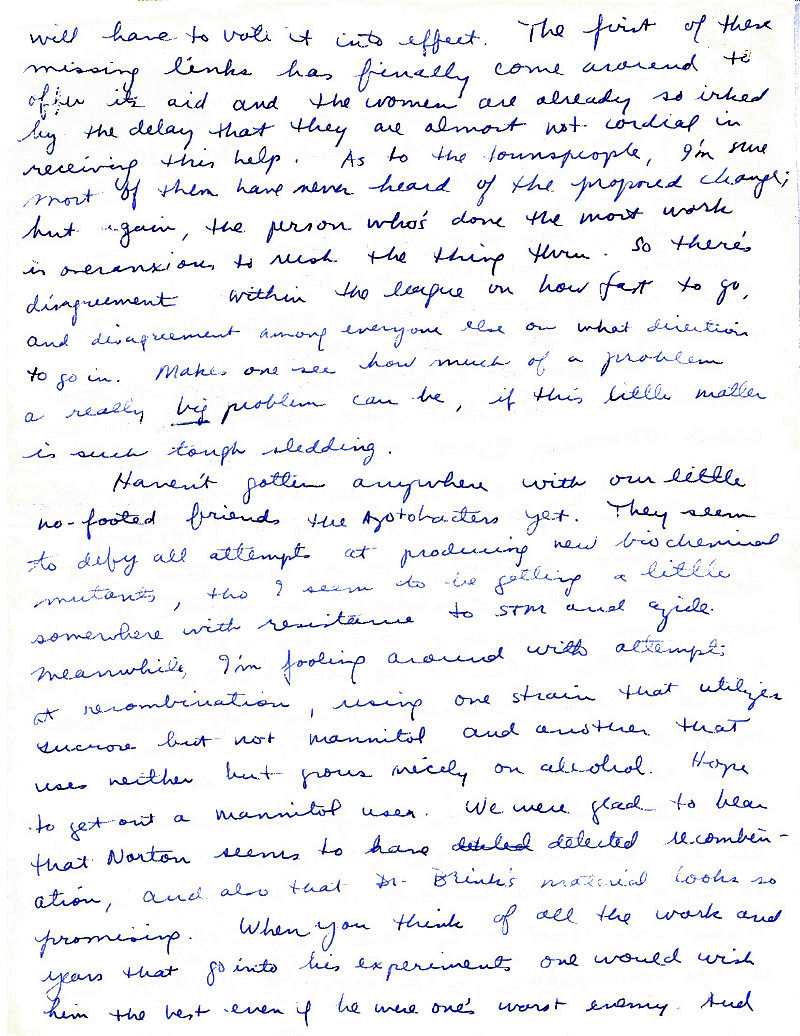 will have to vote it into effect. The first of these
missing links has finally come around to
offer its aid and the women are already so irked
by the delay that they are almost not cordial in
receiving this help. As to the townspeople, I'm sure
most of them have never heard of the proposed change;
but again, the person who's done the most work
is overanxious to rush the thing thru. So there's
disagreement within the league on how fast to go,
and disagreement among everyone else on what direction
to go in. Makes one see how much of a problem
a really big problem can be, if this little matter
is such tough sledding.
Haven't gotten anywhere with our little
no-footed friends the Azotobacters yet. They seem
to defy all attempts at producing new biochemical
mutants, tho I seem to be getting a little
somewhere with resistance to STM and azide.
Meanwhile, I'm fooling around with attempts
at recombination, using one strain that utilizes
sucrose but not mannitol and another that
uses neither but grows nicely on alcohol. Hope
to get out a mannitol user. We were glad to hear
that Norton seems to have detected recombin-
ation, and also that Dr. Brink's material looks so
promising. When you think of all the work and
years that go into his experiments one would wish
him the best even if he were one's worst enemy. And